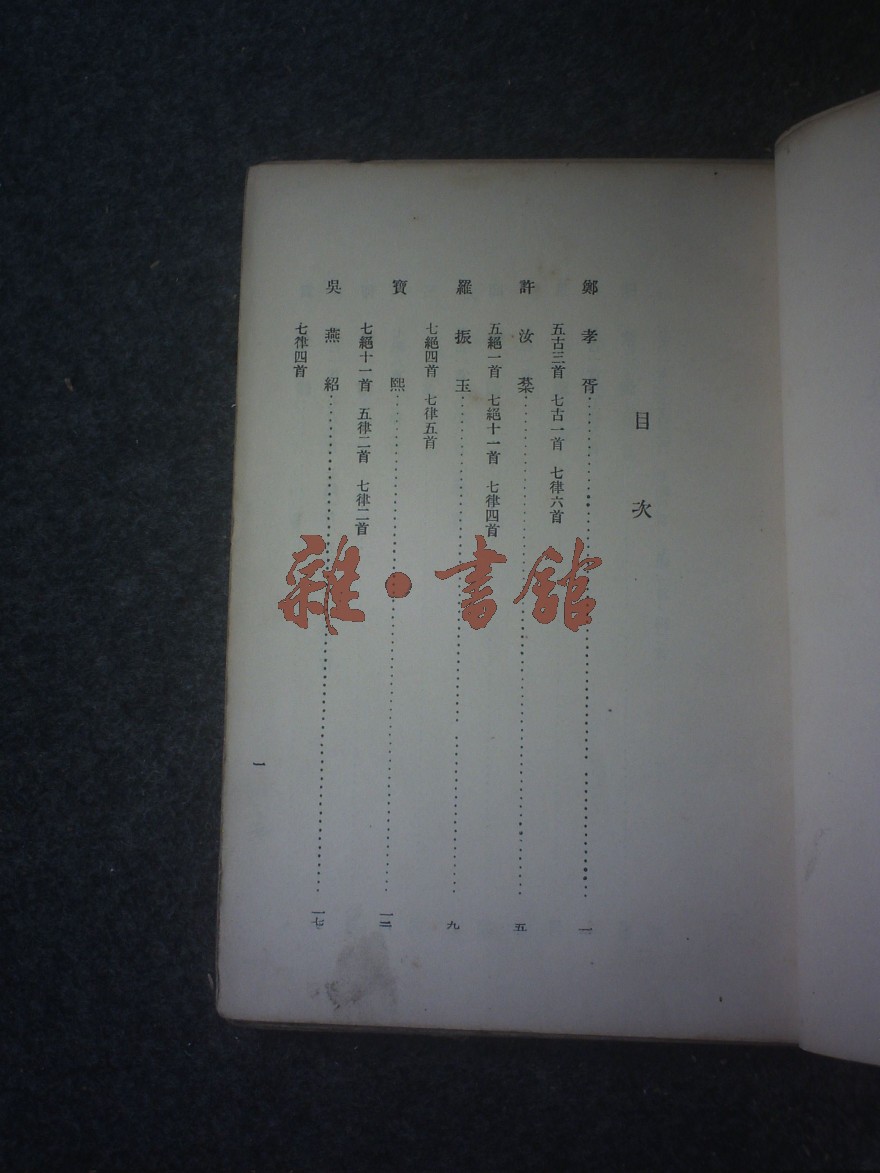 目次
鄭孝胥……一
五古三首 七古一首 七律六首
許汝棻……五
五絕一首 七絕十一首 七律四首
羅振玉……九
七絕四首 七律五首
寶熙……一二
七絕十一首 五律二首 七律二首
吳燕紹……一七
七律四首
一
雜·書館